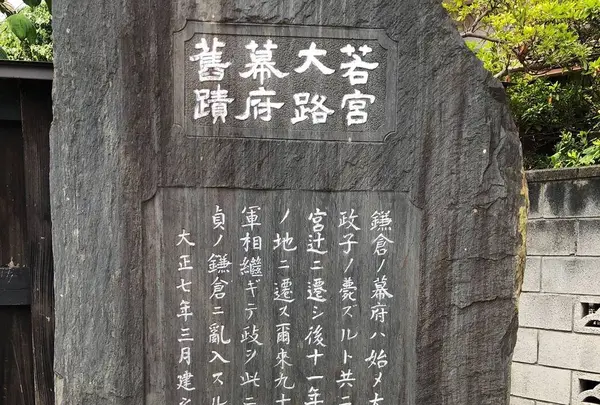 若宮
大路
幕府
舊蹟
鎌倉ノ幕府ハ始メ大
政子ノ薨ズルト共ニ
宮辻ニ遷シ後十一年
ノ地ニ遷ス爾來九十
軍相繼ギテ政ヲ此ニ
貞ノ鎌倉ニ亂入スル
大正七年三月建